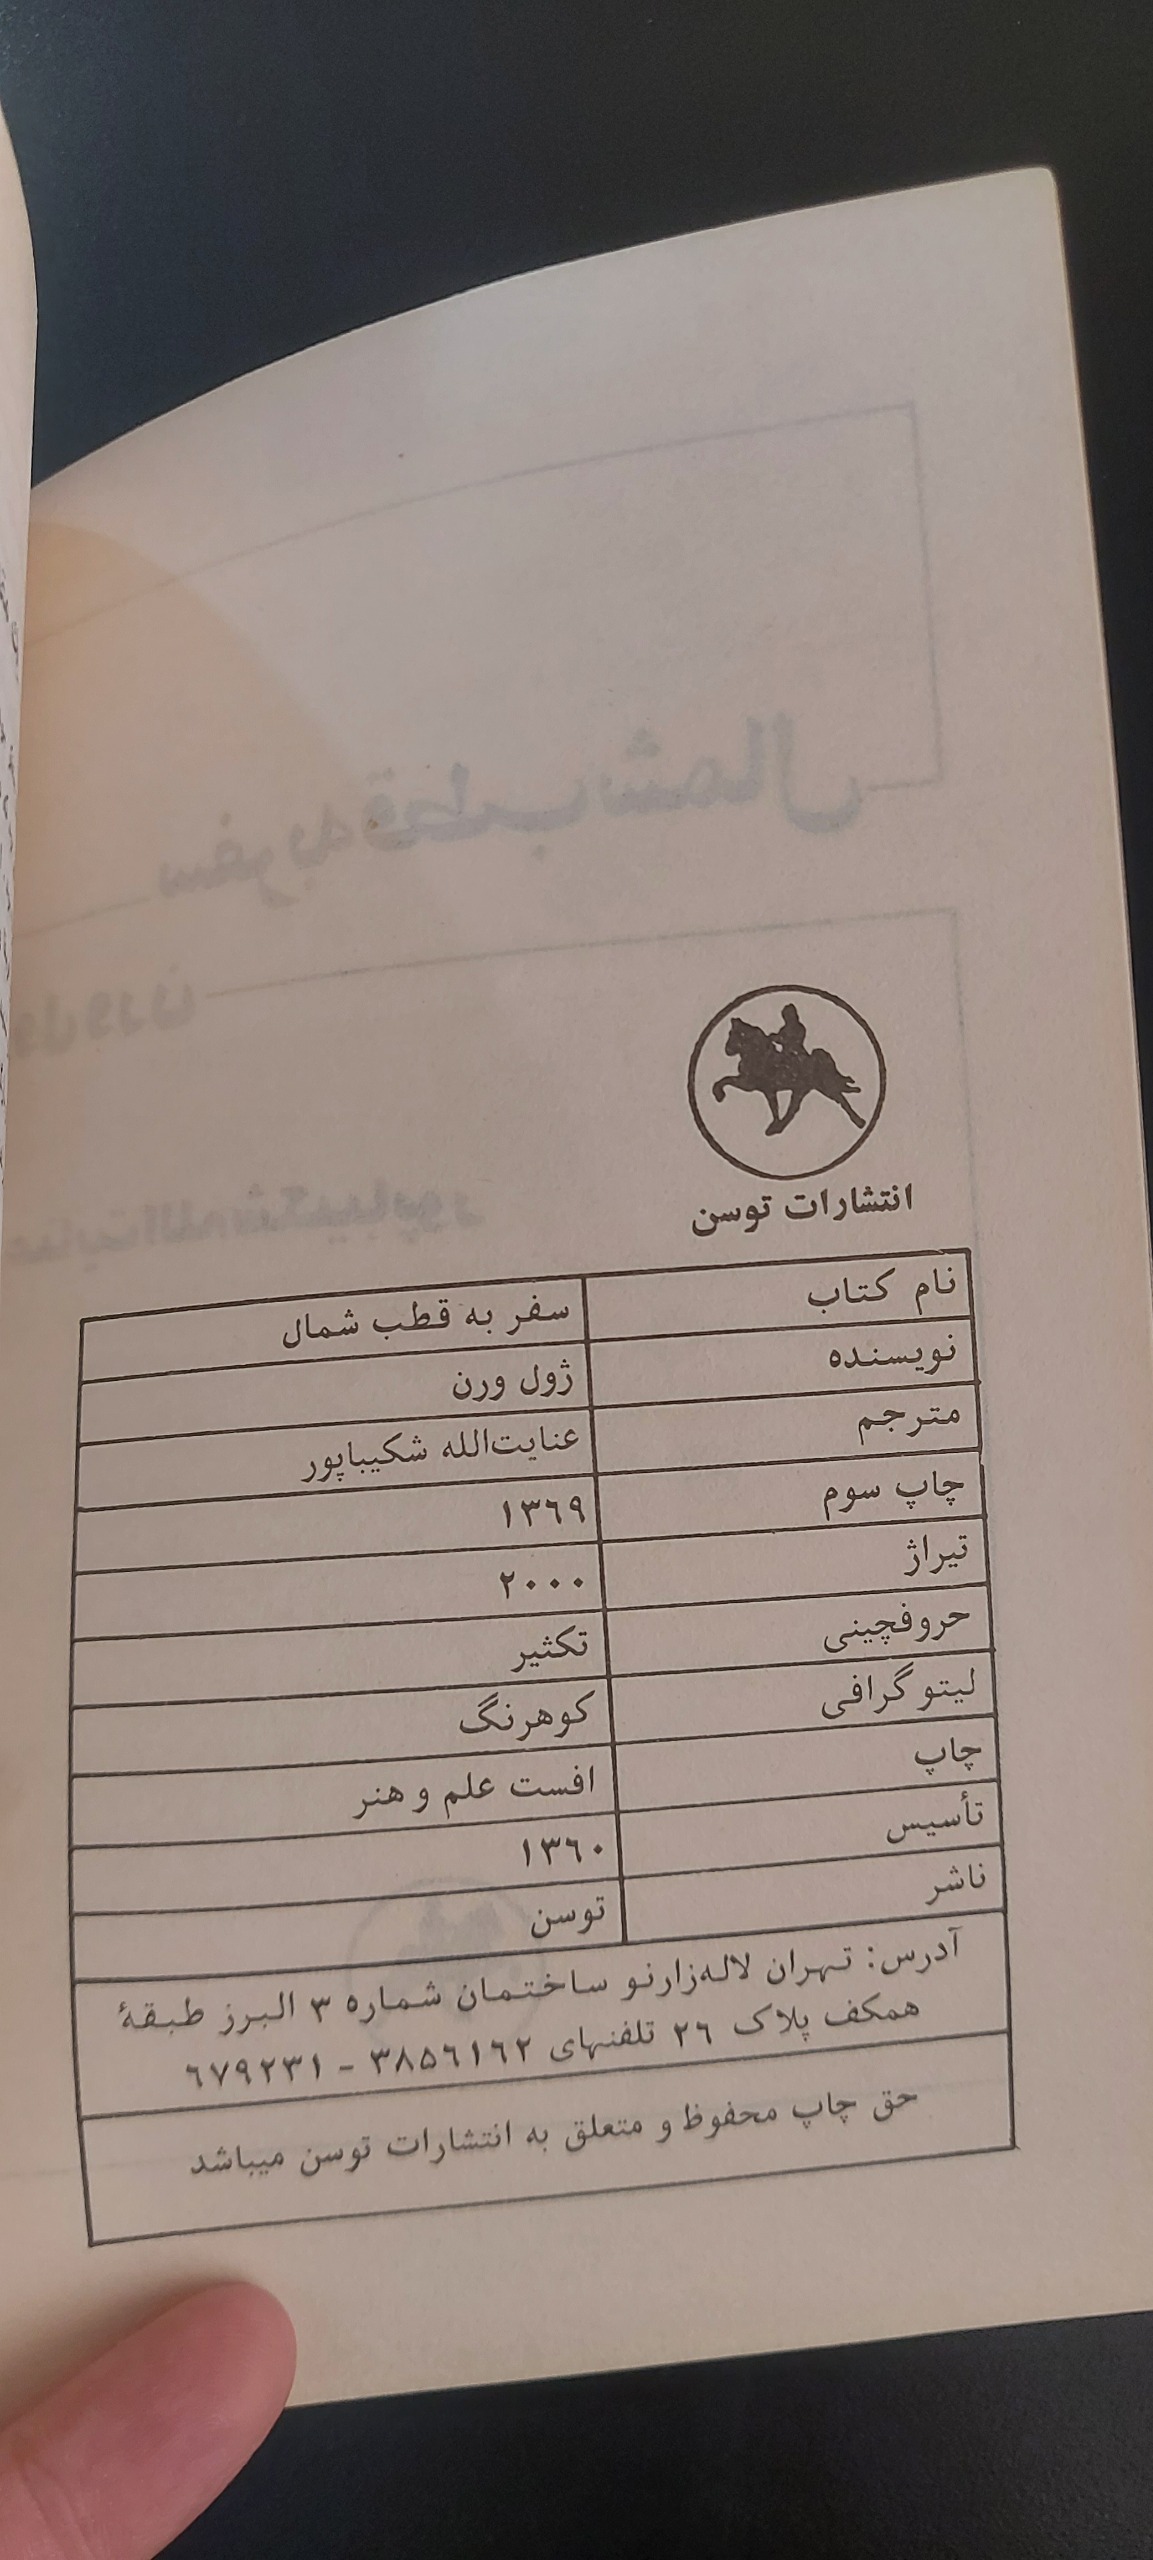 انتشارات توسن
نام کتاب سفر به قطب شمال
نویسنده ژول ورن
مترجم عنایت‌الله شکیباپور
چاپ سوم ۱۳۶۹
تیراژ ۲۰۰۰
حروفچینی تکثیر
لیتوگرافی کوهرنگ
چاپ افست علم و هنر
تأسیس ۱۳۶۰
ناشر توسن
آدرس: تهران لاله‌زارنو ساختمان شماره ۳ البرز طبقهٔ
همکف پلاک ۲۶ تلفنهای ۳۸۵۶۱۶۲ - ۶۷۹۲۳۱
حق چاپ محفوظ و متعلق به انتشارات توسن میباشد
سفر به قطب شمال